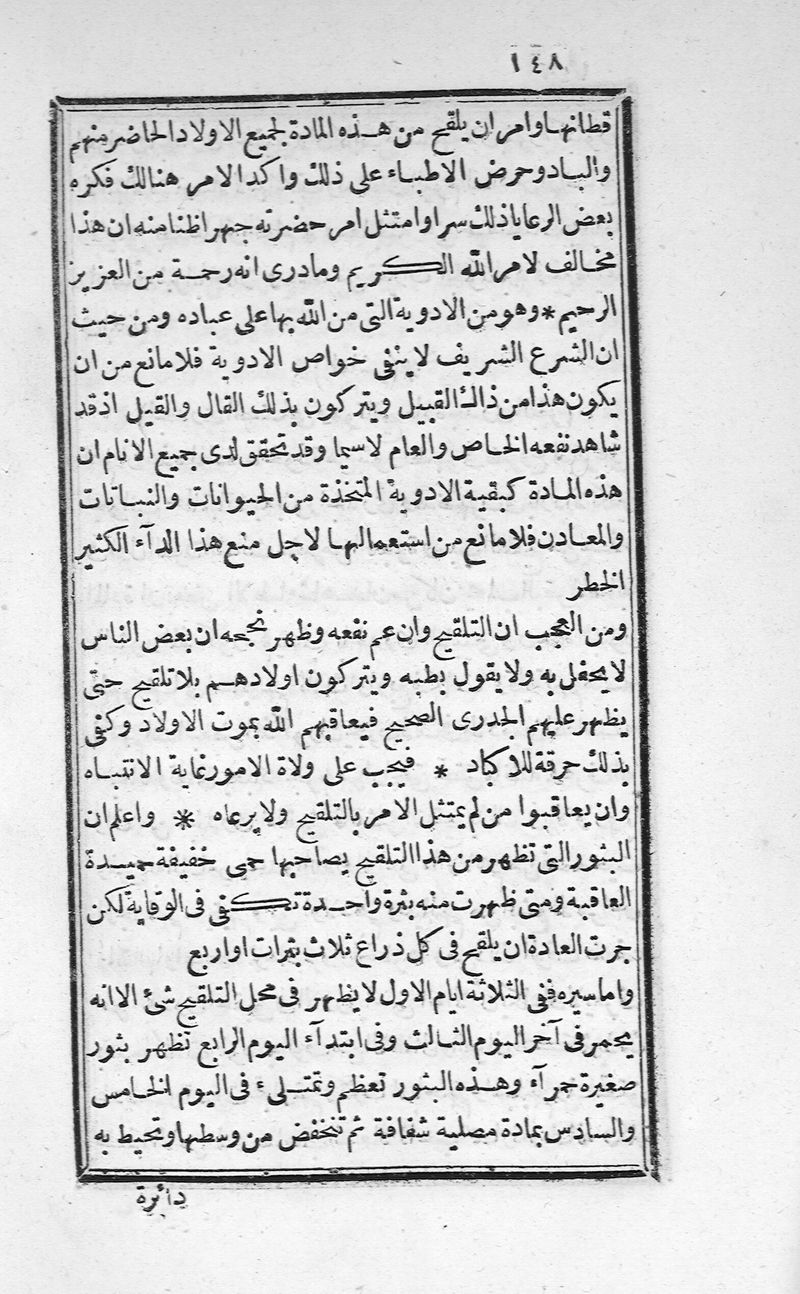 ١٤٨
قطانها وامر ان يلقح من هذه المادة لجميع الاولاد الحاضر منهم
والباد وحرض الاطباء على ذلك واكد الامر هنالك فكره
بعض الرعايا ذلك سرا وامتثل امر حضرته جهرا ظنا منه ان هذا
مخالف لامر الله الكريم ومادرى انه رحمة من العزيز
الرحيم * وهو من الادوية التى من الله بها على عباده ومن حيث
ان الشرع الشريف لا ينفى خواص الادوية فلا مانع من ان
يكون هذا من ذاك القبيل ويتركون بذلك القال والقيل اذ قد
شاهد نفعه الخاص والعام لا سيما وقد تحقق لدى جميع الانام ان
هذه المادة كبقية الادوية المتخذة من الحيوانات والنباتات
والمعادن فلا مانع من استعمالها لاجل منع هذا الدآء الكثير
الخطر
ومن العجب ان التلقيح وان عم نفعه وظهر نجحه ان بعض الناس
لا يحفل به ولا يقول بطبه ويتركون اولادهم بلا تلقيح حتى
يظهر عليهم الجدرى الصحيح فيعاقبهم الله بموت الاولاد وكفى
بذلك حرقة للاكباد * فيجب على ولاة الامور غاية الانتباه
وان يعاقبوا من لم يمتثل الامر بالتلقيح ولا يرعاه * واعلم ان
البثور التى تظهر من هذا التلقيح يصاحبها حمى خفيفة حميدة
العاقبة ومتى ظهرت منه بثرة واحدة تكفى فى الوقاية لكن
جرت العادة ان يلقح فى كل ذراع ثلاث بثرات او اربع
واما سيره ففى الثلاثة ايام الاول لا يظهر فى محل التلقيح شئ الا انه
يحمر فى آخر اليوم الثالث وفى ابتدآء اليوم الرابع تظهر بثور
صغيرة حمرآء وهذه البثور تعظم وتمتلىء فى اليوم الخامس
والسادس بمادة مصلية شفافة ثم تنخفض من وسطها وتحيط به
دائرة